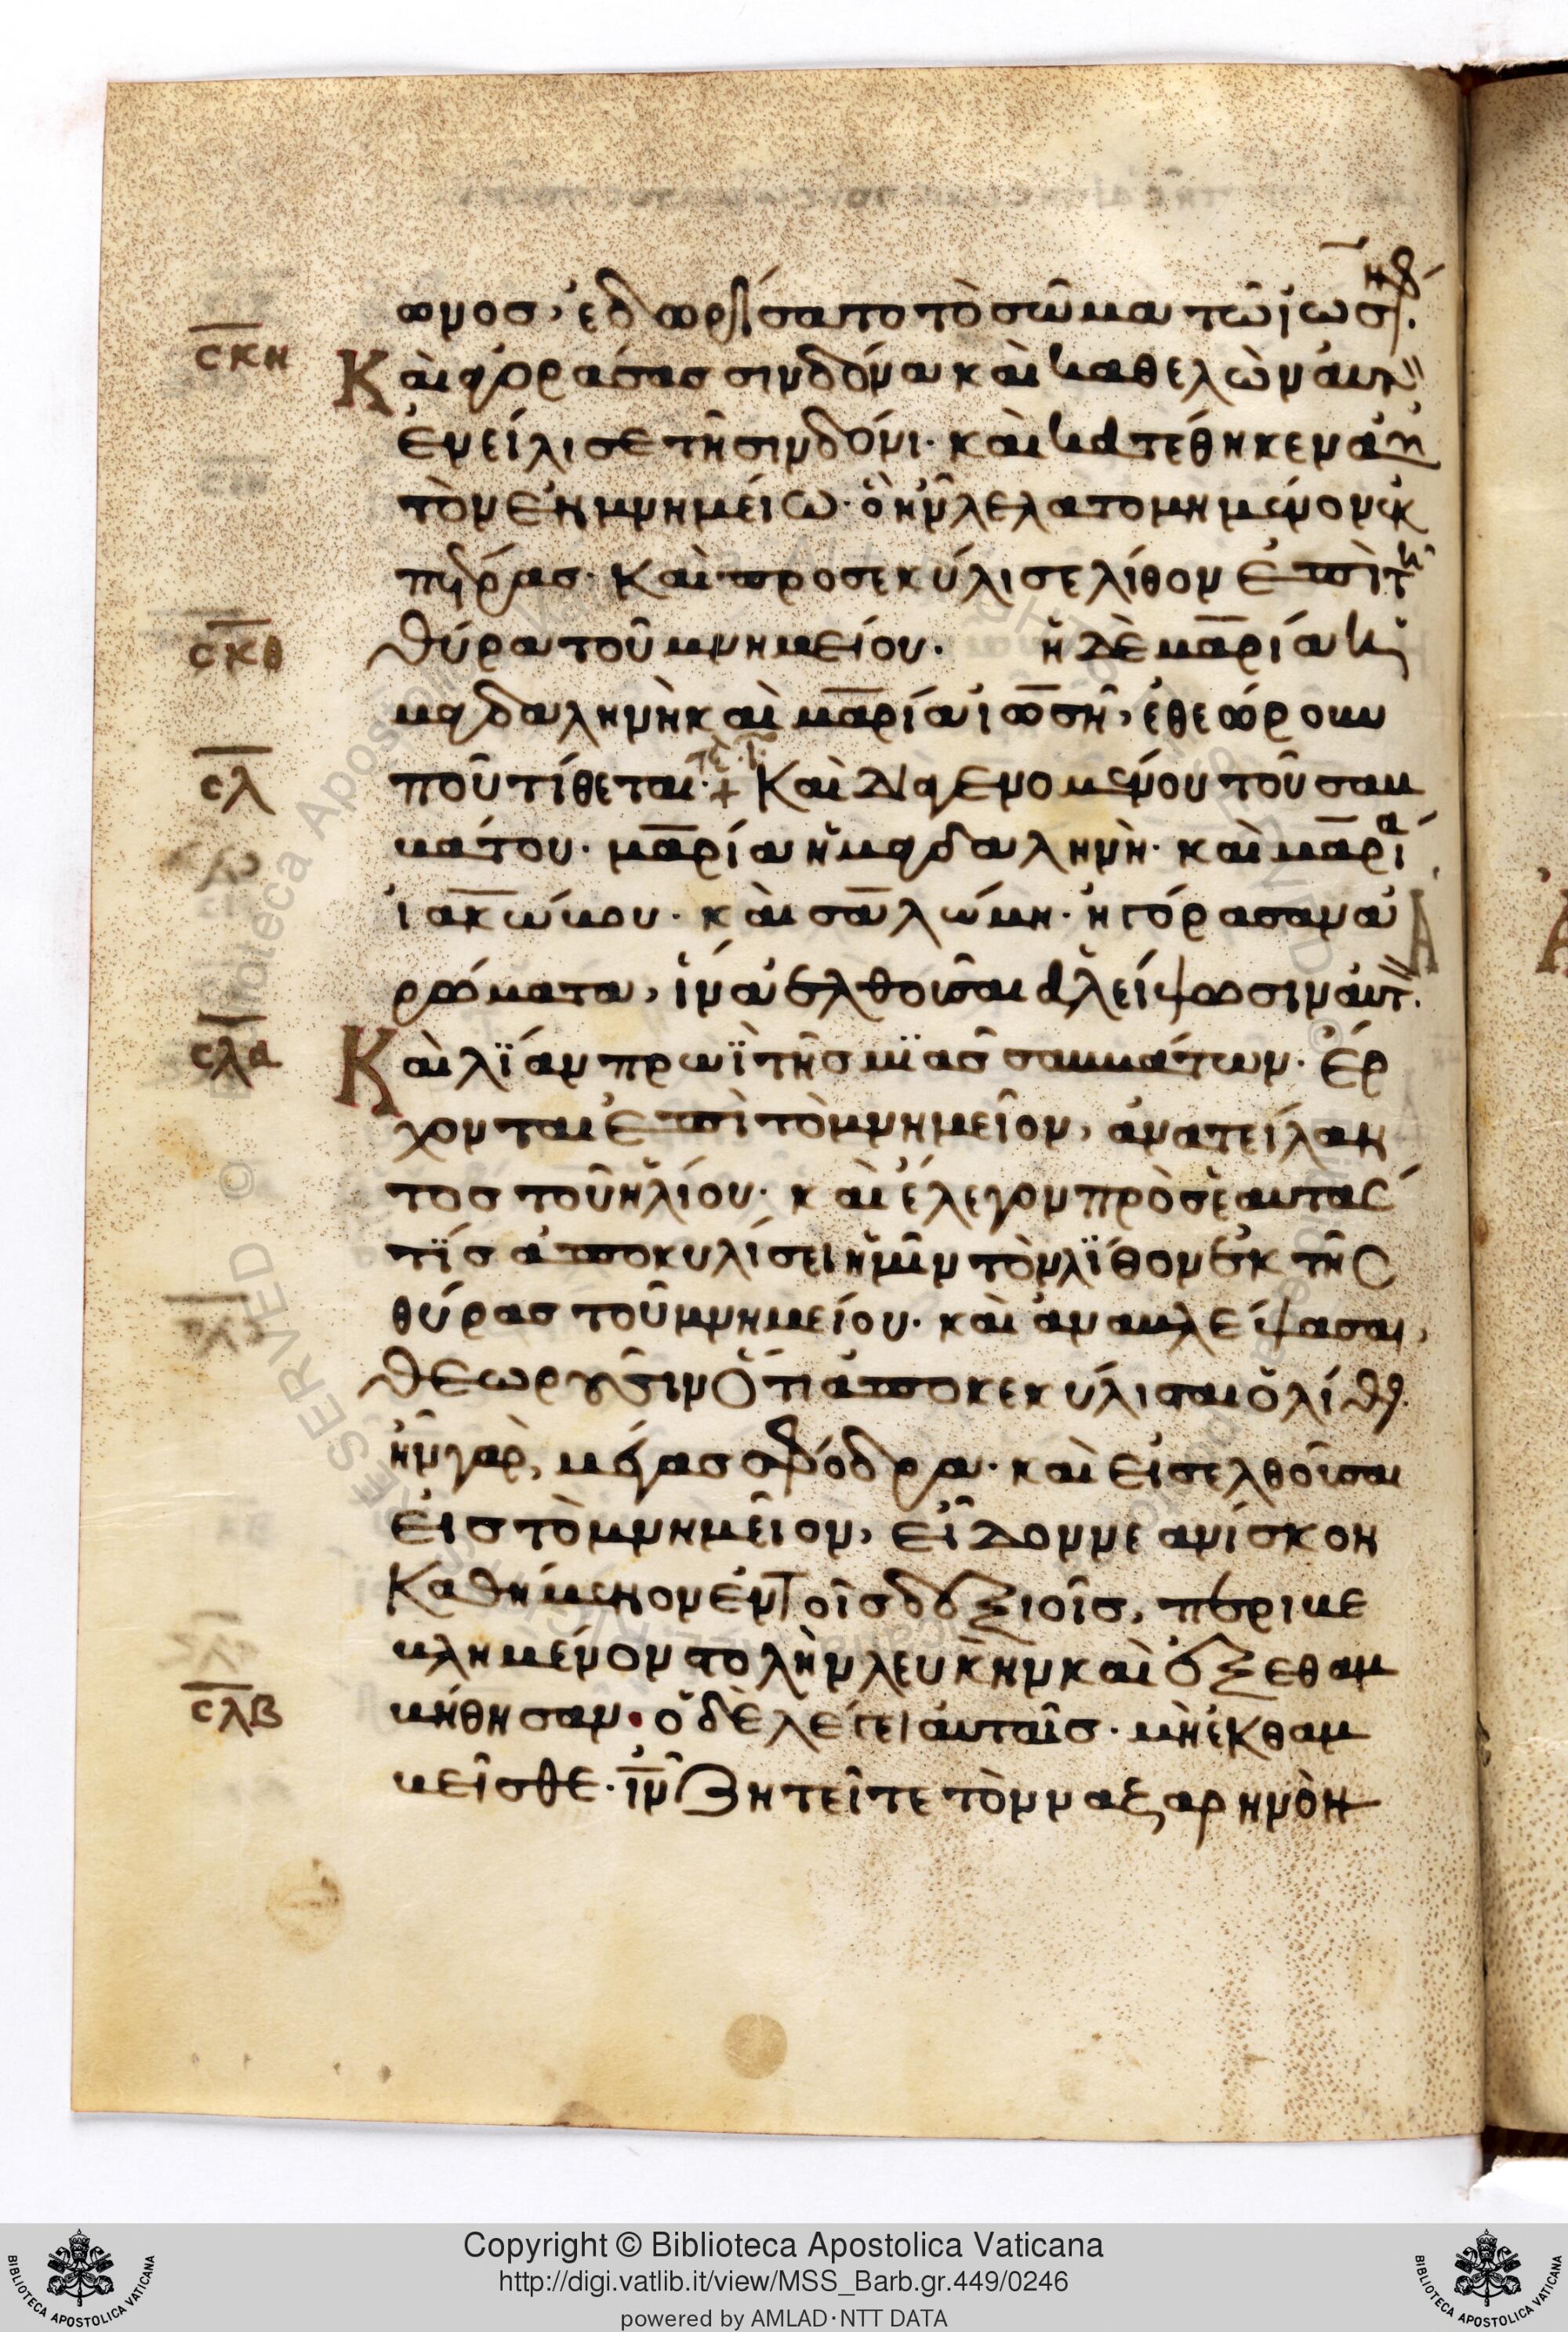 ωνος, ἐδωρήσατο τὸ σῶμα τῶ ἰωσήφ.
σκη
Καὶ ἀγοράσας σινδόνα καὶ καθελὼν αὐτ
ἐνείλισε τῆ σινδόνι· καὶ κατέθηκεν αὐ
τὸν ἐν μνημείω· ὃ ἦν λελατομημένον ἐκ
πέτρας· καὶ προσεκύλισε λίθον ἐπὶ τὴν
σκθ
θύρα τοῦ μνημείου. ἡ δὲ μαρία ἡ
μαγδαληνὴ καὶ μαρία ἰωσῆ, ἐθεώρουν
σλ
ποῦ τίθεται·+ Καὶ διαγενομένου τοῦ σαβ
βάτου· μαρία ἡ μαγδαληνὴ· καὶ μαρία
ἰακώβου· καὶ σαλώμη· ἠγόρασαν ἀ
ρώματα, ἵνα ἐλθοῦσαι ἀλείψωσιν αὐτ.
σλα
Καὶ λΐαν πρωῒ τῆς μϊᾶς σαββάτων· ἔρ
χονται ἐπὶ τὸ μνημεῖον, ἀνατείλαν
τος τοῦ ἡλίου· καὶ ἔλεγον πρὸς ἑαυτάς
τΐς ἀποκυλίσει ἡμῖν τὸν λΐθον ἐκ τῆς
θύρας τοῦ μνημείου· καὶ ἀναβλέψασαι,
θεωροῦσιν ὅτι ἀποκεκύλισται ὁ λίθος.
ἦν γὰρ, μέγας σφόδρα· καὶ εἰσελθοῦσαι
εἰς τὸ μνημεῖον, εἶδον νεανίσκον
καθήμενον ἐν τοῖς δεξιοῖς, περιβε
βλημένον στολὴν λευκὴν καὶ ἐξεθαμ
σλβ
βήθησαν· ὁ δὲ λέγει αὐταῖς· μὴ ἐκθαμ
βεῖσθε· ἰν ζητεῖτε τὸν ναζαρηνὸν
Copyright © Biblioteca Apostolica Vaticana
http://digi.vatlib.it/view/MSS_Barb.gr.449/0246
powered by AMLAD·NTT DATA